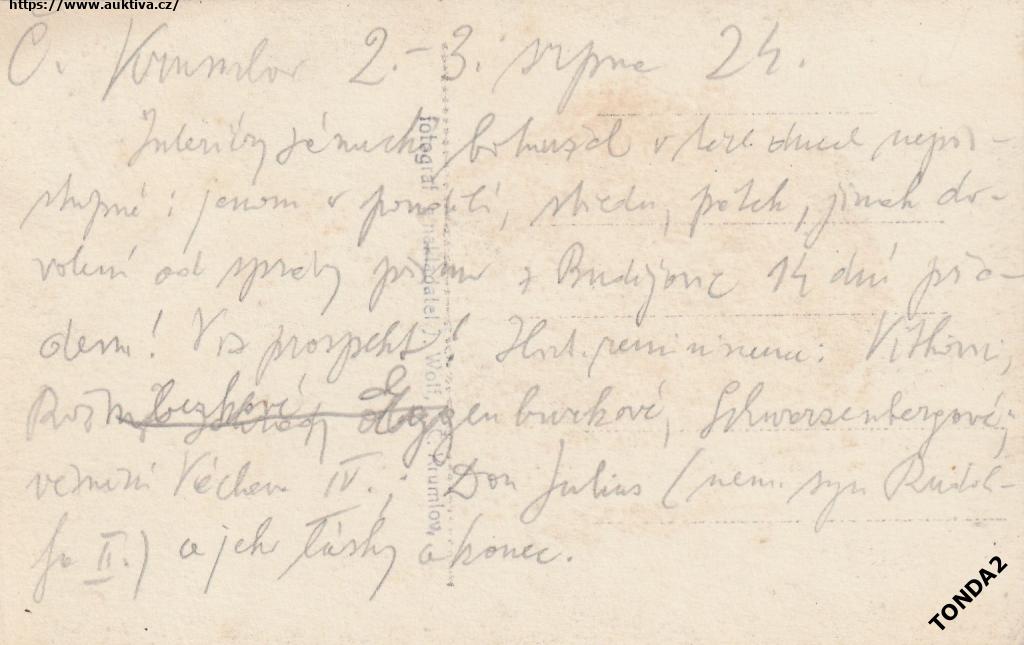 https://www.auktiva.cz/
Č. Krumlov 2.-3. srpna 24.
Interiéry zámecké bohužel v tyto dnech nepří-
stupné; jenom v pondělí, středu, pátek, jinak do-
volení od správy přímo z Budějovic 14 dní pře-
dem! Viz prospekt! Hist. reminiscence: Vítkovci,
Rožmberkové, Eggenburkové, Schwarzenbergové;
věznění Václava IV.; Don Julius (nem. syn Rudol-
fa II.) a jeho lásky a konec.
fotograf J. Wolf, Č. Krumlov.
TONDA2